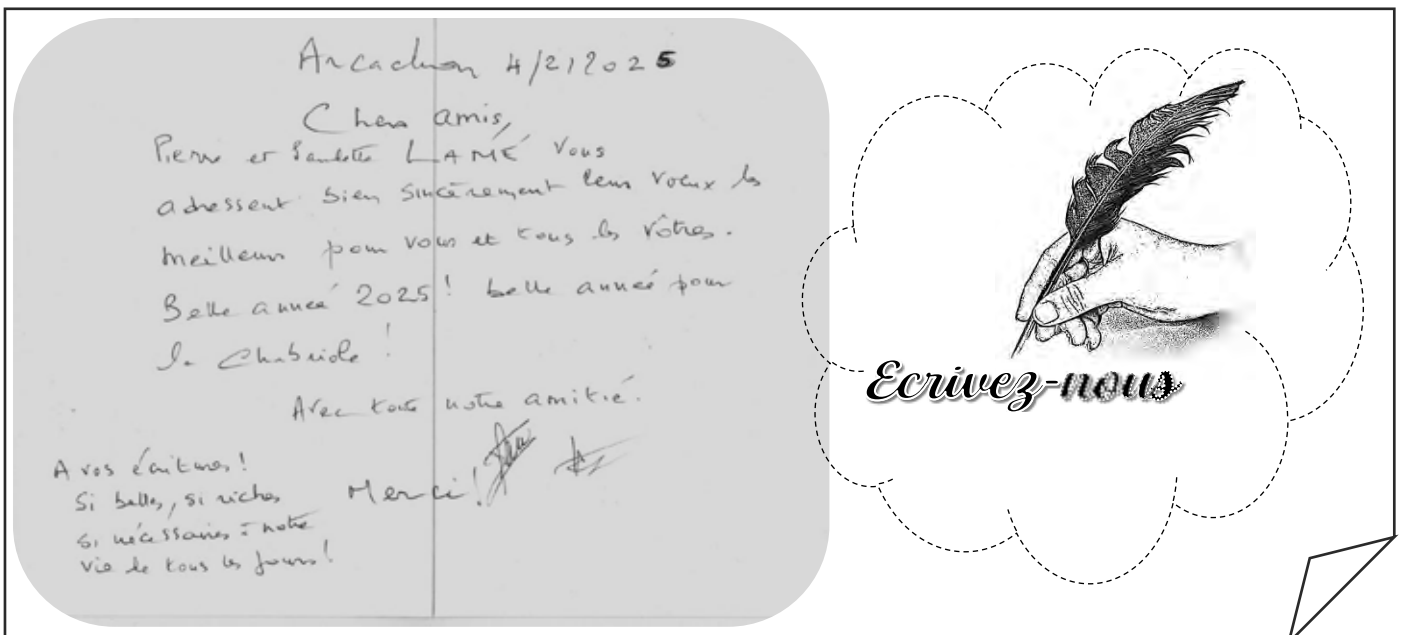 Arcachon 4/2/2025
Chers amis,
Pierre et Paulette LAMÉ vous
adressent bien sincèrement leurs voeux les
meilleurs pour vous et tous les vôtres.
Belle année 2025! belle année pour
la Chabriole!
Avec toute notre amitié.
Merci!
A vos écritures!
Si belles, si riches
si nécessaires à notre
vie de tous les jours!
Ecrivez-nous